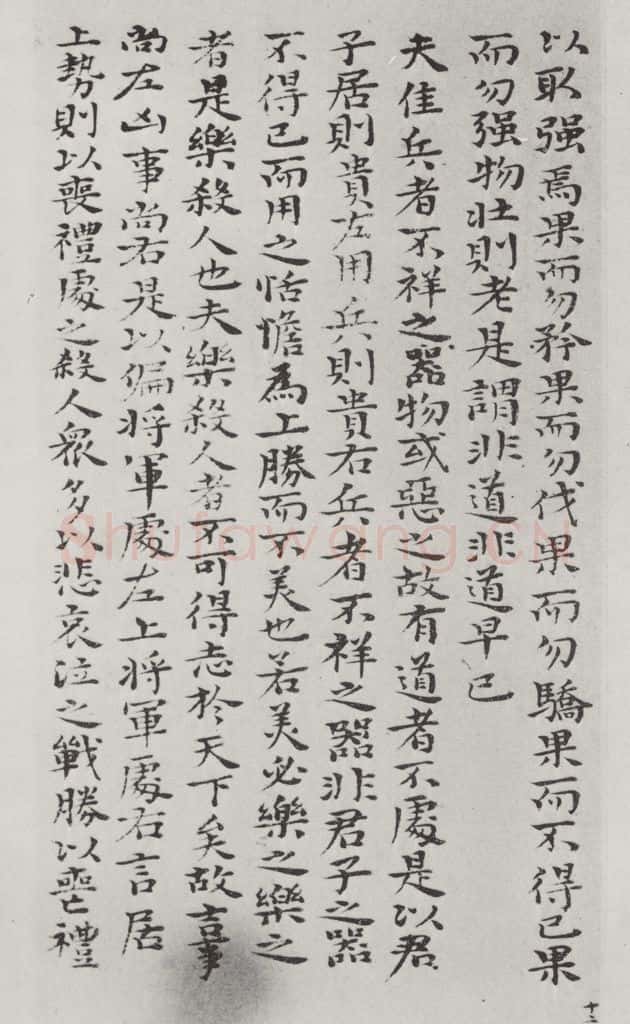 以取强焉果而勿矜果而勿伐果而勿驕果而不得已果
而勿强物壯則老是謂非道非道早已
夫佳兵者不祥之器物或惡之故有道者不處是以君
子居則貴左用兵則貴右兵者不祥之器非君子之器
不得已而用之恬憺為上勝而不美也若美必樂之樂之
者是樂殺人也夫樂殺人者不可得志於天下矣故吉事
尚左凶事尚右是以偏將軍處左上將軍處右言居
上勢則以喪禮處之殺人眾多以悲哀泣之戰勝以喪禮
十二
Shufawang.CN